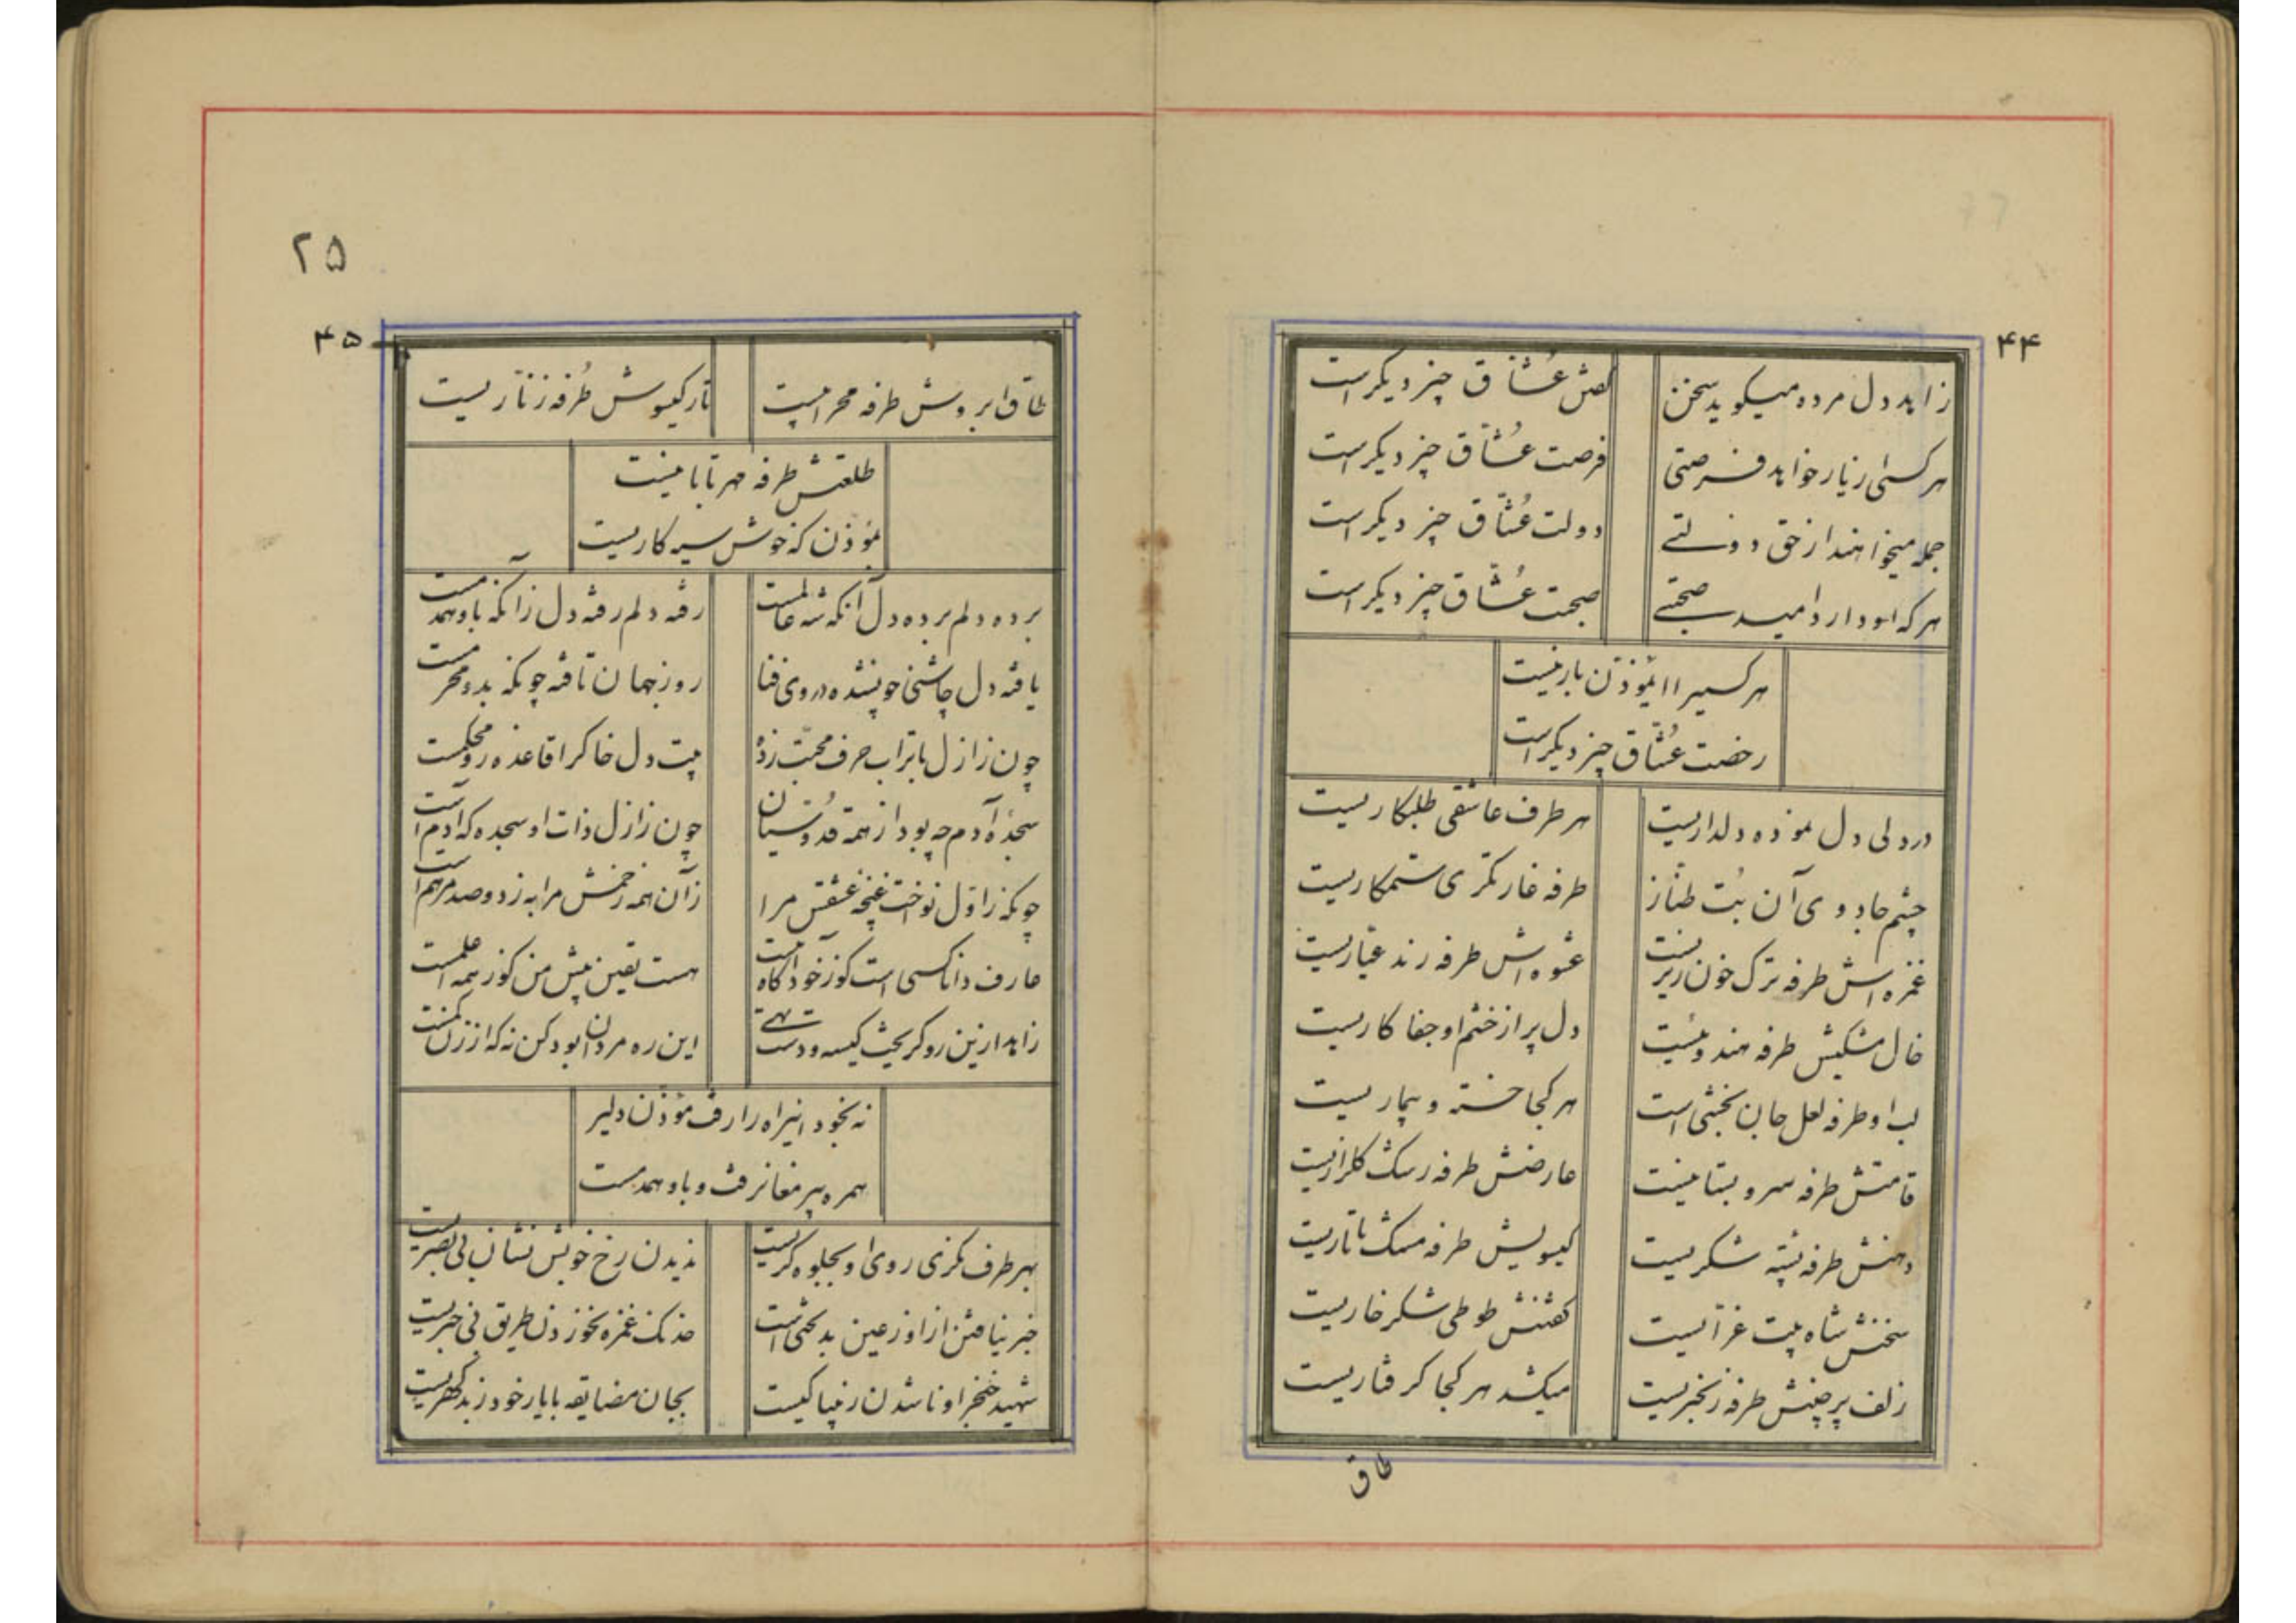 ۴۴
زاهد دل مرده میکوید سخن
کفش عُشّاق چیز دیکر است
هر کسی از یار خواهد فرصتی
فرصت عُشّاق چیز دیکر است
جمله میخواهند از حق دولتے
دولت عُشّاق چیز دیکر است
هر که او دارد امید صحبتے
صحبت عُشّاق چیز دیکر است
هر کسیرا ایمؤذّن بار نیست
رخصت عُشّاق چیز دیکر است
در دلی دل نموده دلداریست
هر طرف عاشقی طلبکاریست
چشم جادوی آن بُت طنّاز
طرفه غارتکری ستمکاریست
غمزه اش طرفه ترک خون ریزیست
عشوه اش طرفه رند عیّاریست
خال مشکینش طرفه هندوئیست
دل پر از خشم او جفا کاریست
لب او طرفه لعل جان بخشی است
هر کجا خسته و بیماریست
قامتش طرفه سرو بستانیست
عارضش طرفه رشک کلزاریست
دهنش طرفه پسته شکریست
کیسویش طرفه مشک تاتاریست
سخنش شاه بیت غرّائیست
کفتنش طوطی شکر خاریست
زلف پر چینش طرفه زنجیریست
میکشد هر کجا کرفتاریست
طاق
۲۵
۴۵
طاق ابروش طرفه محرابیست
تار کیسوش طُرفه زنّاریست
طلعتش طرفه مهر تابانیست
مؤذن که خوش سیه کاریست
برده دلم برده دل آنکه شه عالمست
رفته دلم رفته دل زانکه باو همدمست
یافته دل چاشنی چو بشده در وی فنا
روز جهان تافته چونکه بدو محرمست
چون ز ازل با تراب حرف محبّت زده
بیت دل خاک را قاعده زو محکمست
سجدۀ آدم چه بود از همه قدّوسیان
چون ز ازل ذات او سجده که آدم است
چونکه ز اوّل نواخت غنچۀ عشقش مرا
زآن همه زخمش مرا به ز دو صد مرهم است
عارف دانا کسی است کو ز خود آکاه است
هست یقین پیش من کو ز همه اعلمست
زاهد ازین رو کریخت کیسه و دستش تهے
این ره مردان بود کن نه که از زن کمست
نه بخود اینراه را رفت مؤذّن دلیر
همره پیر مغان رفت و باو همدمست
بهر طرف نکری روی او بجلوه کریست
ندیدن رخ خوبش نشان بی بصریست
خبر نیافتن از او ز عین بدبختی است
خدنک غمزه نخوردن طریق بی خبریست
شهید خنجر او ناشدن ز نپاکیست
بجان مضایقه با یار خود ز بدکهریست